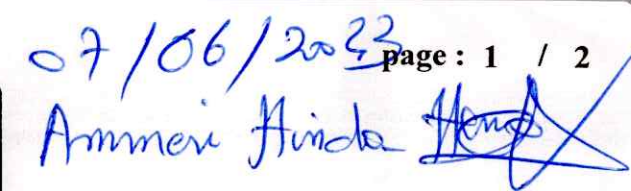 07/06/2023 page : 1 / 2
Ammeri Hinda